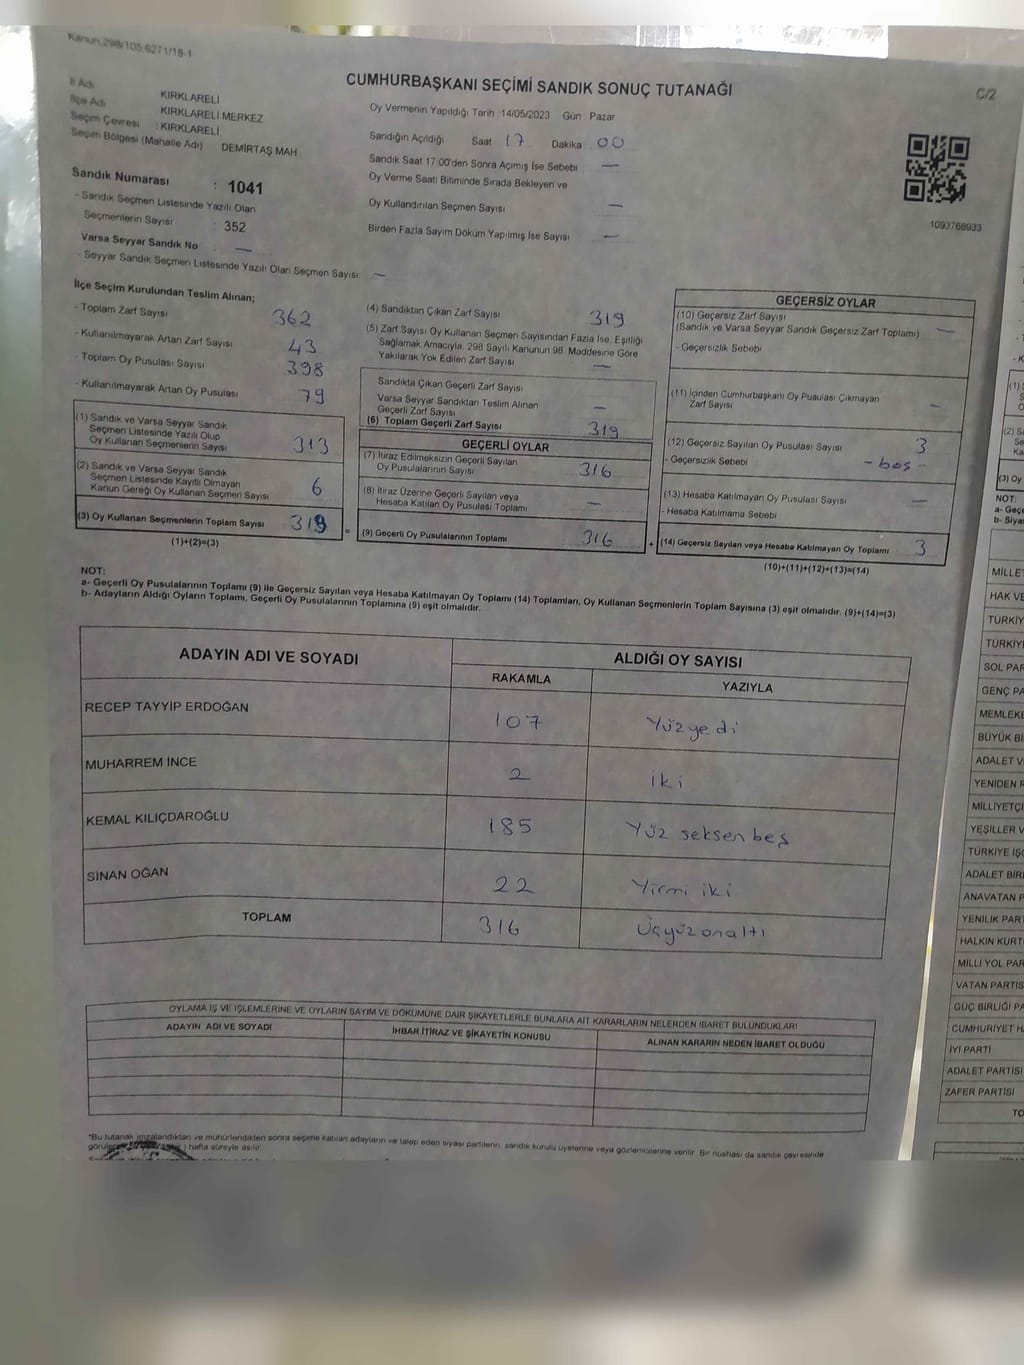 Kanun:298/105;6271/18-1
CUMHURBAŞKANI SEÇİMİ SANDIK SONUÇ TUTANAĞI
C/2
İl Adı KIRKLARELİ
İlçe Adı KIRKLARELİ MERKEZ
Seçim Çevresi : KIRKLARELİ
Seçim Bölgesi (Mahalle Adı) DEMİRTAŞ MAH
Oy Vermenin Yapıldığı Tarih :14/05/2023 Gün : Pazar
Sandığın Açıldığı Saat 17 Dakika 00
Sandık Saat 17:00'den Sonra Açımış İse Sebebi —
Oy Verme Saati Bitiminde Sırada Bekleyen ve
Oy Kullandırılan Seçmen Sayısı —
Birden Fazla Sayım Döküm Yapılmış İse Sayısı —
1093766933
Sandık Numarası : 1041
- Sandık Seçmen Listesinde Yazılı Olan
Seçmenlerin Sayısı : 352
Varsa Seyyar Sandık No —
- Seyyar Sandık Seçmen Listesinde Yazılı Olan Seçmen Sayısı: —
İlçe Seçim Kurulundan Teslim Alınan;
- Toplam Zarf Sayısı 362
- Kullanılmayarak Artan Zarf Sayısı 43
- Toplam Oy Pusulası Sayısı 398
- Kullanılmayarak Artan Oy Pusulası 79
(1) Sandık ve Varsa Seyyar Sandık
Seçmen Listesinde Yazılı Olup
Oy Kullanan Seçmenlerin Sayısı 313
(2) Sandık ve Varsa Seyyar Sandık
Seçmen Listesinde Kayıtlı Olmayan
Kanun Gereği Oy Kullanan Seçmen Sayısı 6
(3) Oy Kullanan Seçmenlerin Toplam Sayısı 319 =
(1)+(2)=(3)
(4) Sandıktan Çıkan Zarf Sayısı 319
(5) Zarf Sayısı Oy Kullanan Seçmen Sayısından Fazla İse, Eşitliği
Sağlamak Amacıyla, 298 Sayılı Kanunun 98. Maddesine Göre
Yakılarak Yok Edilen Zarf Sayısı —
Sandıkta Çıkan Geçerli Zarf Sayısı
Varsa Seyyar Sandıktan Teslim Alınan
Geçerli Zarf Sayısı —
(6) Toplam Geçerli Zarf Sayısı 319
GEÇERLİ OYLAR
(7) İtiraz Edilmeksizin Geçerli Sayılan
Oy Pusulalarının Sayısı 316
(8) İtiraz Üzerine Geçerli Sayılan veya
Hesaba Katılan Oy Pusulası Toplamı —
(9) Geçerli Oy Pusulalarının Toplamı 316 +
GEÇERSİZ OYLAR
(10) Geçersiz Zarf Sayısı
(Sandık ve Varsa Seyyar Sandık Geçersiz Zarf Toplamı) —
- Geçersizlik Sebebi
(11) İçinden Cumhurbaşkanı Oy Pusulası Çıkmayan
Zarf Sayısı —
(12) Geçersiz Sayılan Oy Pusulası Sayısı 3
- Geçersizlik Sebebi - boş -
(13) Hesaba Katılmayan Oy Pusulası Sayısı —
- Hesaba Katılmama Sebebi
(14) Geçersiz Sayılan veya Hesaba Katılmayan Oy Toplamı 3
(10)+(11)+(12)+(13)=(14)
NOT:
a- Geçerli Oy Pusulalarının Toplamı (9) ile Geçersiz Sayılan veya Hesaba Katılmayan Oy Toplamı (14) Toplamları, Oy Kullanan Seçmenlerin Toplam Sayısına (3) eşit olmalıdır. (9)+(14)=(3)
b- Adayların Aldığı Oyların Toplamı, Geçerli Oy Pusulalarının Toplamına (9) eşit olmalıdır.
ADAYIN ADI VE SOYADI
ALDIĞI OY SAYISI
RAKAMLA YAZIYLA
RECEP TAYYİP ERDOĞAN 107 Yüzyedi
MUHARREM İNCE 2 iki
KEMAL KILIÇDAROĞLU 185 Yüz seksen beş
SİNAN OĞAN 22 Yirmi iki
TOPLAM 316 Üçyüzonaltı
OYLAMA İŞ VE İŞLEMLERİNE VE OYLARIN SAYIM VE DÖKÜMÜNE DAİR ŞİKAYETLERLE BUNLARA AİT KARARLARIN NELERDEN İBARET BULUNDUKLARI
ADAYIN ADI VE SOYADI İHBAR İTİRAZ VE ŞİKAYETİN KONUSU ALINAN KARARIN NEDEN İBARET OLDUĞU
*Bu tutanak imzalandıktan ve mühürlendikten sonra seçime katılan adayların ve talep eden siyasi partilerin sandık kurulu üyelerine veya gözlemcilerine verilir. Bir nüshası da sandık çevresinde
hafta süreyle asılır.
(3) Oy
NOT:
a- Geçe
b- Siya
MİLLET
HAK VE
TÜRKİY
TÜRKİY
SOL PAR
GENÇ PA
MEMLEKE
BÜYÜK Bİ
ADALET V
YENİDEN R
MİLLİYETÇİ
YEŞİLLER V
TÜRKİYE İŞÇ
ADALET BİRL
ANAVATAN P
YENİLİK PAR
HALKIN KURT
MİLLİ YOL PAR
VATAN PARTİS
GÜÇ BİRLİĞİ PA
CUMHURİYET HA
İYİ PARTİ
ADALET PARTİSİ
ZAFER PARTİSİ
TO